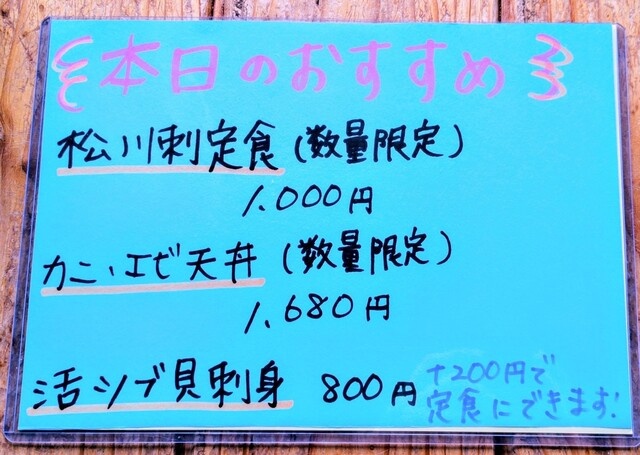 本日のおすすめ
松川刺定食(数量限定)
1,000円
カニ、エビ天丼(数量限定)
1,680円
活シブ貝刺身 800円
+200円で
定食にできます!